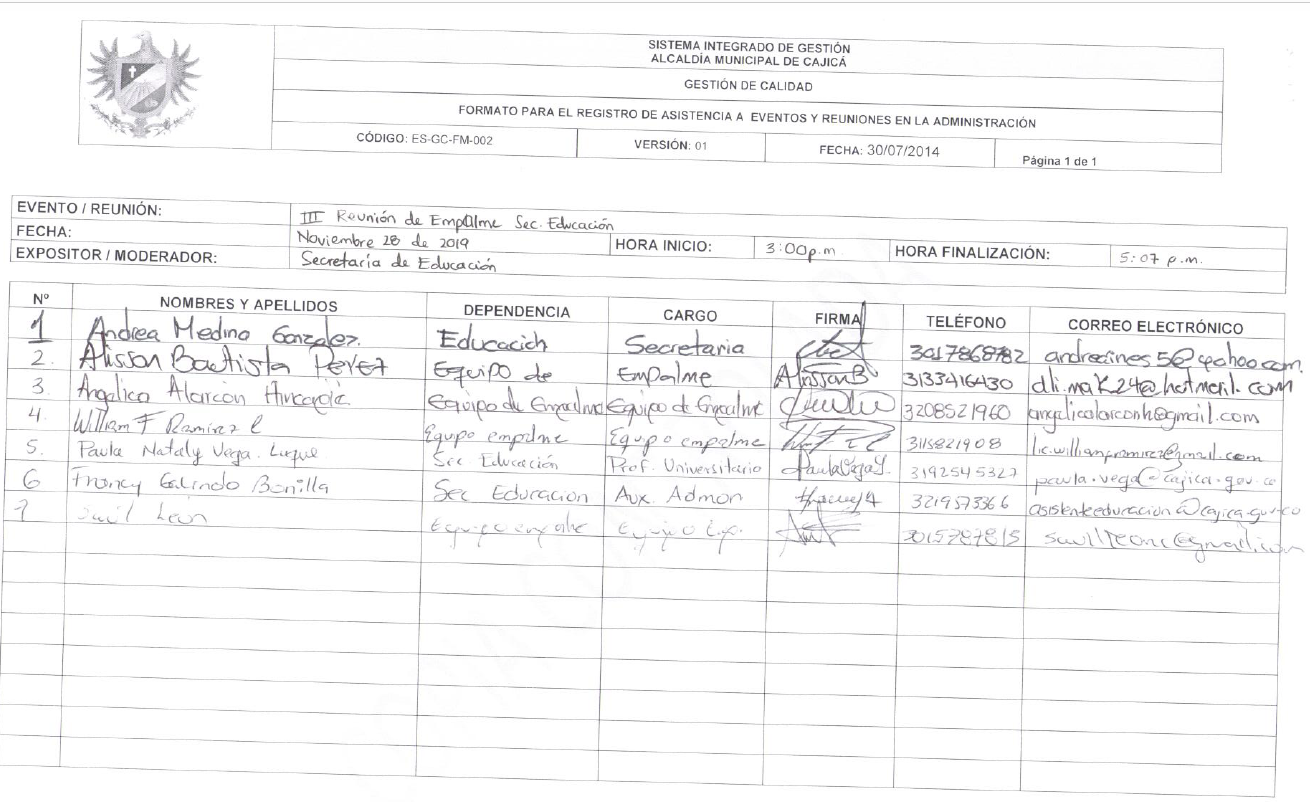 SISTEMA INTEGRADO DE GESTIÓN
ALCALDÍA MUNICIPAL DE CAJICÁ
GESTIÓN DE CALIDAD
FORMATO PARA EL REGISTRO DE ASISTENCIA A EVENTOS Y REUNIONES EN LA ADMINISTRACIÓN
CÓDIGO: ES-GC-FM-002 VERSIÓN: 01 FECHA: 30/07/2014 Página 1 de 1
EVENTO / REUNIÓN: III Reunión de Empalme Sec. Educación
FECHA: Noviembre 28 de 2019 HORA INICIO: 3:00p.m HORA FINALIZACIÓN: 5:07 p.m.
EXPOSITOR / MODERADOR: Secretaría de Educación
Nº NOMBRES Y APELLIDOS DEPENDENCIA CARGO FIRMA TELÉFONO CORREO ELECTRÓNICO
1 Andrea Medina Gonzalez. Secretaria 3017868782
2. Alisson Bautista Equipo de Empalme AlissonB 3133416430
3. Angelica Alarcon Equipo de Empalme Equipo de Empalme 3208521960 angelicalarconh@gmail.com
4. William F Ramirez Equipo empalme Equipo empalme 3115821908
5. Paula Nataly Vega. Luque Sec. Educación Prof. Universitario 3192545327 paula.vega@cajica.gov.co
6 Francy Galindo Bonilla Sec Educacion Aux. Admon 3219573366 asistenteeducacion@cajica.gov.co
7 León Equipo empalme Equipo 3015787815